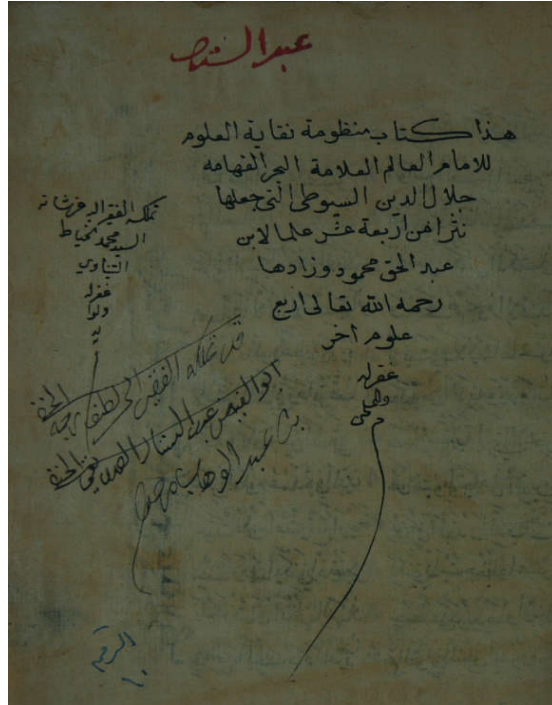 عبدالستار
هذا كتاب منظومة نقاية العلوم
للامام العالم العلامة البحر الفهامه
جلال الدين السيوطى التى جعلها
نثرا من اربعة عشر علما لابن
عبد الحق محمود وزادها
رحمه الله تعالى اربع
علوم اخر
غفر له
تملكه الفقير
السيد محمد الخياط
غفر له
قد تملكه الفقير الى لطف ربه الخفى
ابو الفيض عبد الستار الصديقى الحنفى
بن عبد الوهاب
الرقم
١٠